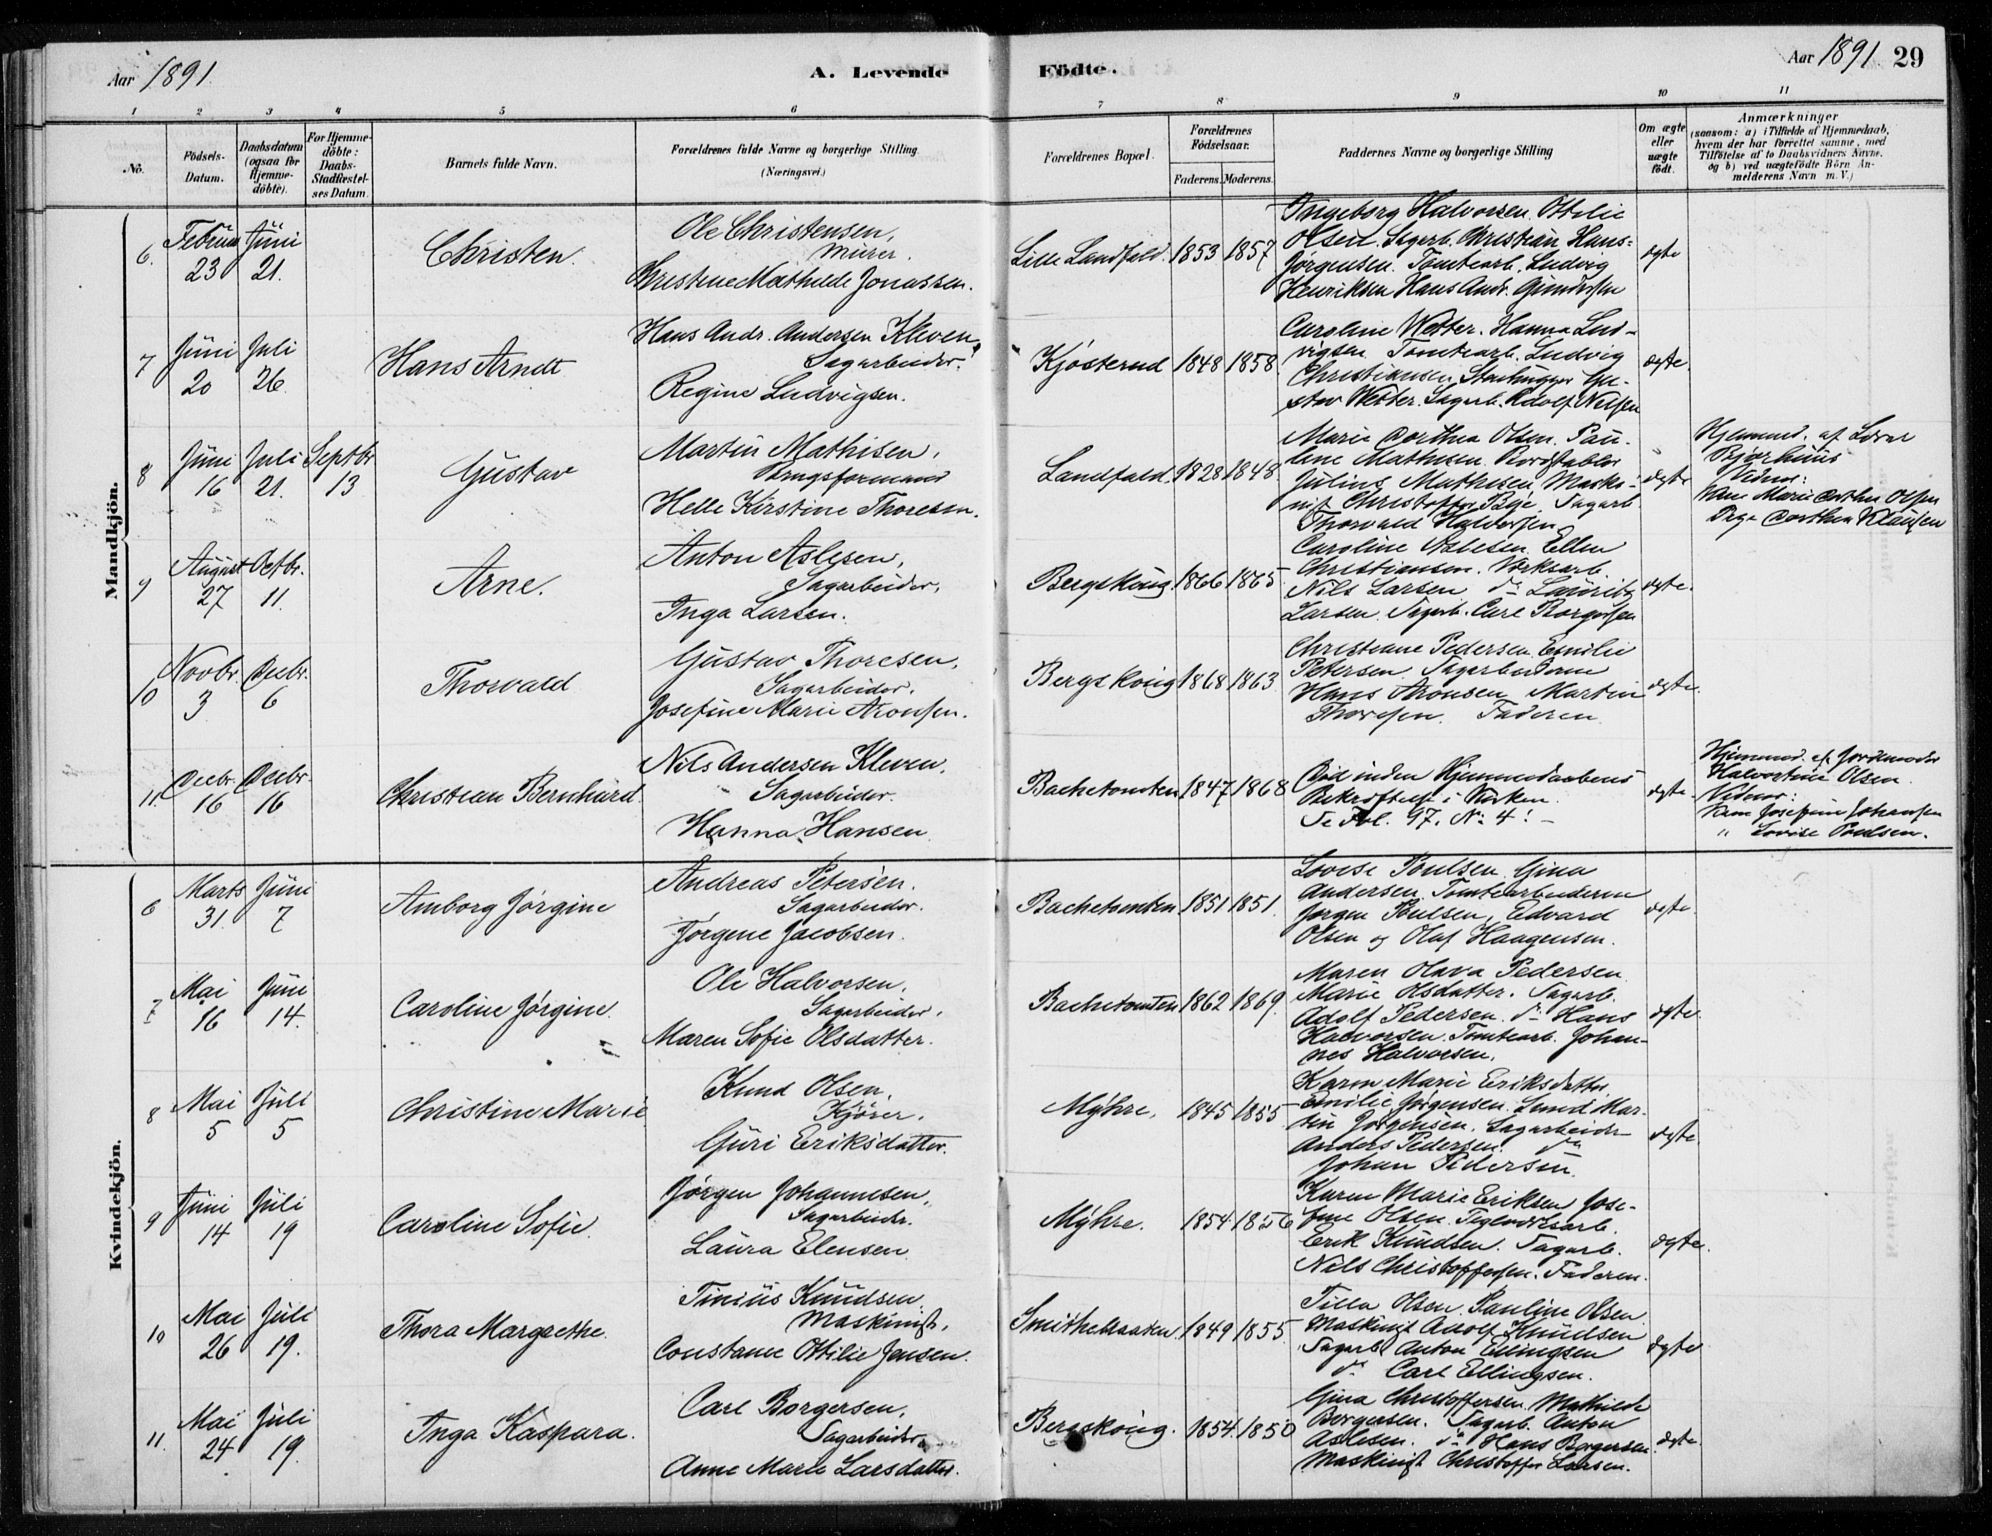 Aar 1891.
A. Levende Födte.
Aar 1891
29
1 2 3 4 5 6 7 8 9 10 11
No.
Födsels-Datum.
Daabsdatum (ogsaa for Hjemme-döbte).
For Hjemme-döbte: Daabs-Stadfæstel-ses Datum.
Barnets fulde Navn.
Forældrenes fulde Navne og borgerlige Stilling. (Næringsvei.)
Forældrenes Bopæl.
Forældrenes Födselsaar.
Faderens. Moderens.
Faddernes Navne og borgerlige Stilling
Om ægte eller uægte født.
Anmærkninger
(saasom: a) i Tilfælde af Hjemmedaab,
hvem der har forrettet samme, med
Tilföielse af to Daabsvidners Navne,
og b) ved uægtefödte Börn An-
melderens Navn m. V.)
Mandkjön.
6. Februar 23 Juni 21.
Christen.
Ole Christensen,
Murer.
Christine Mathilde Jonassen.
Lille Landfald. 1853 1857
Ingeborg Halvorsen Ottilie
Olsen. Sagarb. Christian Hans-
Jørgensen. Tomtearb. Ludvig
Henriksen Hans Andr. Gundersen
ægte
7 Juni 20 Juli 26.
Hans Arndt
Hans Andr. Andersen Kleven,
Sagarbeider.
Regine Ludvigsen.
Kjösterud 1848 1858
Caroline Wetter. Hanna Lud-
vigsen Tomtearb. Ludvig
Christiansen Stenhugger Gu-
stav Wetter. Sagarb. Adolf Nilsen
ægte.
8 Juni 16 Juli 21. Septbr 13
Gustav
Martin Mathisen,
Brugsformand
Helle Kirstine Thoresen.
Landfald. 1828 1848.
Marie Dorthea Olsen. Pau-
line Mathisen. Bordstabler
Julius Mathisen Maski-
nist Christoffer Bye. Sagarb.
Thorvald Halvorsen
ægte
Hjemmed. af Lærer
Bjørhuus
Vidner:
Kone Marie Dorthea Olsen
Pige Dorthea Klausen
9 August 27 Octbr. 11.
Arne.
Anton Aslesen,
Sagarbeider,
Inga Larsen.
Bergskoug. 1866 1865
Caroline Aslesen Ellen
Christiansen. Værksarb.
Nils Larsen do
Larsen. Sagarb. Carl Borgersen
ægte.
10 Novbr. 3 Decbr. 6
Thorvald
Gustav Thoresen,
Sagarbeider.
Josefine Marie Aronsen.
Bergskoug 1868 1863
Christiane Pedersen Emilie
Petersen Sagarbeiderne
Hans Aronsen Martin
Thoresen. Faderen.
ægte.
11. Decbr. 16 Decbr. 16
Christian Bernhard
Nils Andersen Kleven,
Sagarbeider.
Hanna Hansen
Bachetomten 1847 1868
Död inden Hjemmedaabens
Bekræftelse i Kirken.
Se Fol. 97. No 4.
ægte.
Hjemmed. af Jordmoder
Halvordine Olsen
Vidner:
Kone Josefine Johansen
" Lovise Poulsen.
Kvindekjön.
6 Marts 31. Juni 7
Amborg Jørgine
Andreas Petersen.
Sagarbeider.
Jørgine Jacobsen.
Bachetomten. 1851 1851.
Lovise Poulsen Gina
Andersen Tomtearbeiderne
Jørgen Poulsen, Edvard
Olsen og Olaf Haagensen.
ægte.
7 Mai 16 Juni 14.
Caroline Jørgine.
Ole Halvorsen,
Sagarbeider,
Maren Sofie Olsdatter.
Bachetomten 1862 1869.
Maren Olava Pedersen
Marie Olsdatter. Sagarb.
Adolf Pedersen. do Hans
Halvorsen. Tomtearb. Johan-
nes Halvorsen.
ægte.
8 Mai 5 Juli 5
Christine Marie
Knud Olsen,
Kjører.
Guri Eriksdatter.
Myhre. 1845 1855
Karen Marie Eriksdatter
Emilie Jørgensen. Smed Mar-
tin Jørgensen. Sagarbeider
Anders Pedersen. do
Johan Pedersen
ægte.
9 Juni 14 Juli 19
Caroline Sofie.
Jørgen Johannesen,
Sagarbeider.
Laura Elensen.
Myhre. 1854 1856
Karen Marie Eriksen Jose-
fine Olsen. Teglværksarb.
Erik Knudsen. Sagarb.
Nils Christoffersen. Faderen.
ægte.
10 Mai 26 Juli 19.
Thora Margrethe.
Tinius Knudsen
Maskinist.
Constance Ottilie Jensen.
Smithestranden. 1849 1855
Tilla Olsen. Pauline Olsen
Maskinist Adolf Knudsen
Sagarb. Anton Ellingsen
do Carl Ellingsen.
ægte
11. Mai 24 Juli 19.
Inga Kaspara.
Carl Borgersen,
Sagarbeider
Anne Marie Larsdatter.
Bergskoug. 1854. 1850
Gina Christoffersen. Mathilde
Borgersen. Sagarb. Anton
Aslesen. do Hans Borgersen
Maskinist Christoffer Larsen.
ægte.